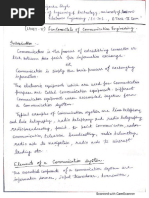 Unit - 01 Fundamentals of Communication Engineering
Introduction
Communication is the process of establishing connection or
link between two points for information exchange.
OR
Communication is simply the basic process of exchanging
information.
The electronics equipments which are used for communication
purpose, are called communication equipments. Different
communication equipments when assembled together form a
communication system.
Typical example of communication system are line telephony
and line telegraphy, radio telephony and radio telegraphy,
radio broadcasting, point-to-point communication and mobile
communication, computer communication, radar communication,
television broadcasting, radio telemetry, radio aids to
navigation, radio aids to aircraft
landing etc.
Elements of a Communication System
The essential components of a communication system are
information source, input transducer, transmitter,
Scanned with CamScanner